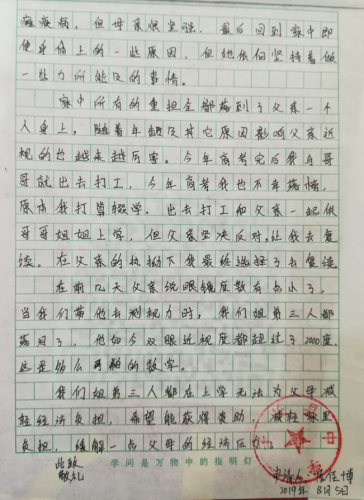 疾病，但母亲很坚强，最后回到家中即
使身体上的一些原因，但她依旧坚持着做
一些力所能及的事情。
家中所有的重担全都落到了父亲一个
人身上，随着年龄及其它原因影响父亲近
视的也越来越厉害。今年高考完后我与哥
哥就出去打工，今年高考我也不幸落榜，
原本我打算辍学，出去打工和父亲一起供
哥哥姐姐上学，但父亲坚决反对，让我去复
读。在父亲的执拗下我最终选择了去复读
在前几天父亲说眼镜度数有点小了，
当我们带他去测视力时，我们姐弟三人都
震惊了，他如今双眼近视度都超过了2000度，
这是多么可怕的数字。
我们姐弟三人都在上学无法为父母减
轻经济负担，希望能获得资助，减轻家里
负担，缓解一点父母的经济压力。
此致
敬礼
学问是万物中的指明灯
申请人
2019年8月5日